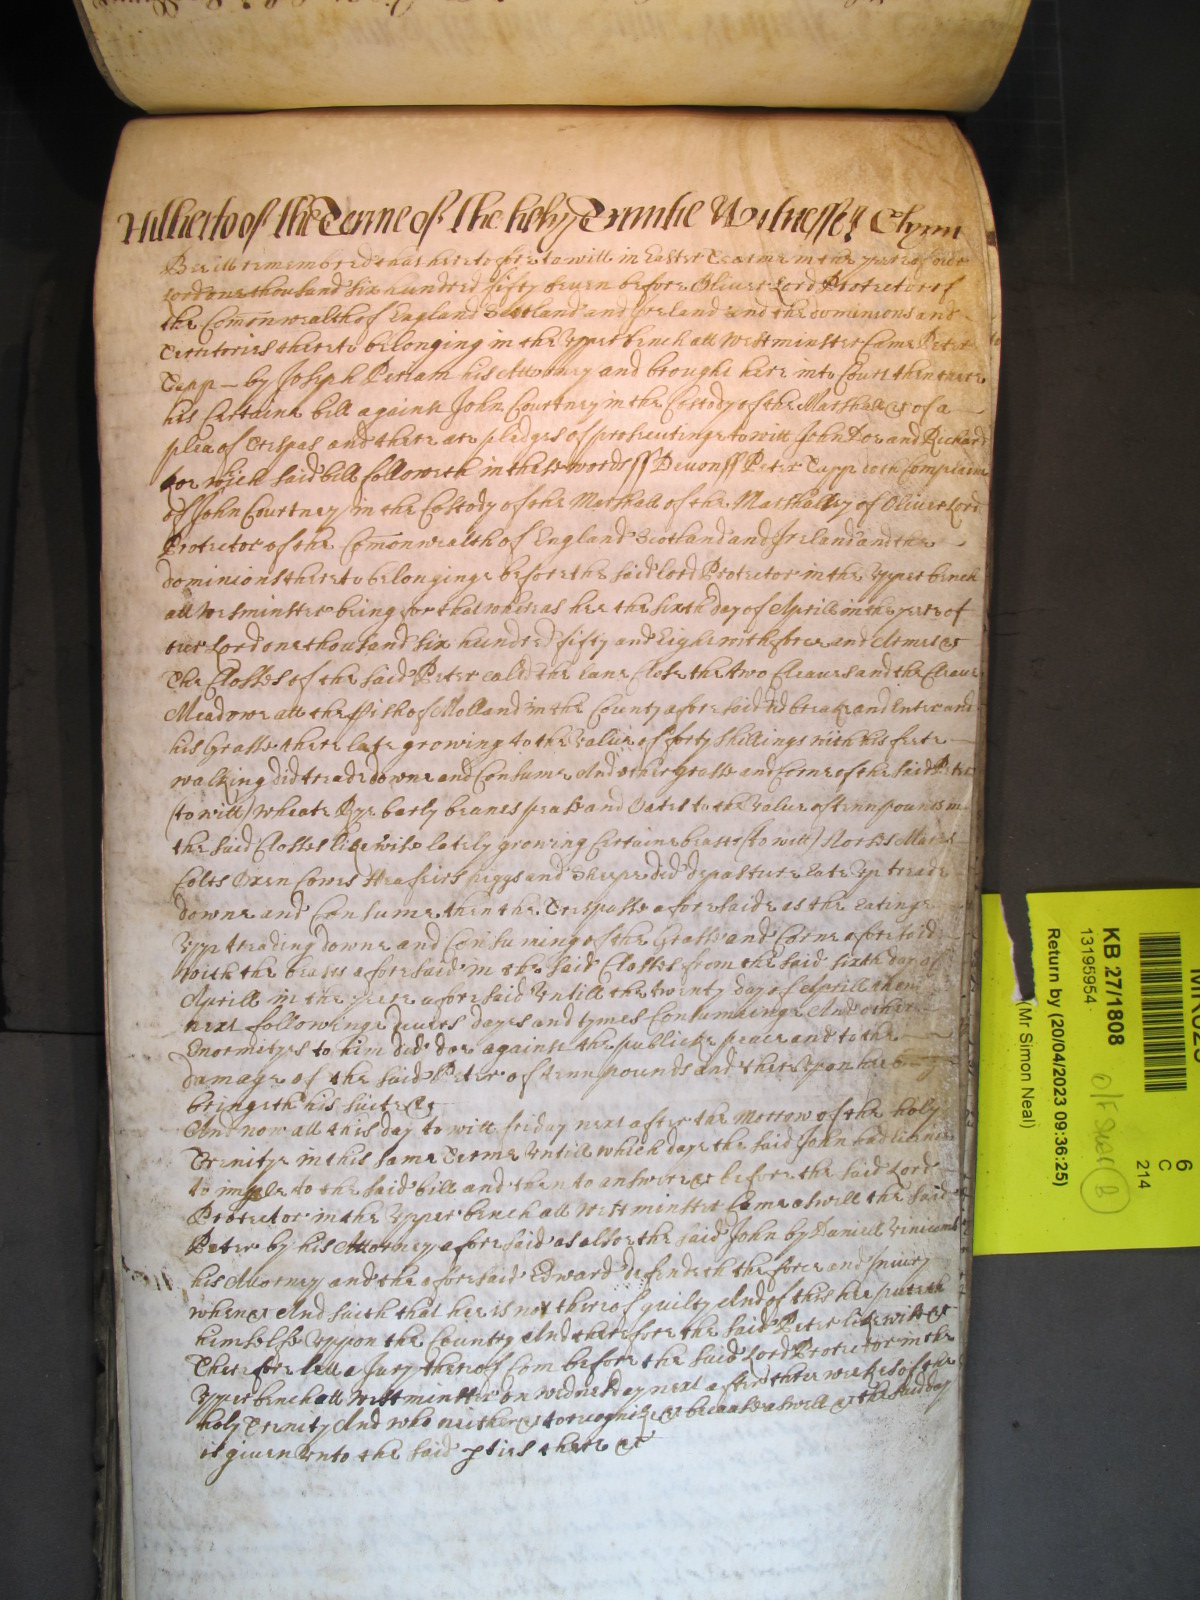 Hitherto of the Terme of the holy Trinitie Witnesse Glynn
Bee itt remembred that heretofore to witt in Easter Tearme in the yeare of our
Lord one thousand six hundred fifty seven before Oliver Lord Protector of
the Comonwealth of England Scotland and Ireland and the dominions and
Territories thereto belonging in the Upper bench att Westminster Came Peter
Tapp by Joseph Periam his Attorney and brought here into Court then there
his Certaine bill against John Courtney in the Costody of the Marshall &c of a
plea of Trespas and there are pledges of prosecutinge to witt John Doe and Richard
Roe which said bill followeth in these words ss Devon ss Peter Tapp doth Complaine
of John Courtney in the Costody of the Marshall of the Marshalsey of Oliver Lord
Protector of the Comonwealth of England Scotland and Ireland and the
dominions thereto belonginge before the said lord Protector in the Upper bench
att Wesminster being for that whereas hee the sixth day of Aprill in the yere of
our Lord one thousand six hundred fifty and Eight with force and Armes &c
The Closses of the said Peter calld the Lane Close the two Cleaves and the Cleave
Meadowe att the pish of Molland in the County aforesaid did breake and Enter and
his Grasse there late growing to the value of forty shillings with his feete
walking did treade downe and Consume And other Grasse and Corne of the said Peter
(to witt) Wheate Rye barly beanes pease and Oates to the value of tenn pounds in
the said Closses likewise lately growing Certaine beasts (to witt) Horses Mares
Colts Oxen Cowes Heafeirs piggs and Sheepe did depasture eate Up treade
downe and Consume then the Trespasse aforesaide as the Eatinge
Upp treading downe and Consuming of the Grasse and Corne aforesaid
with the beasts aforesaid in the said Closses from the said sixth day of
Aprill in the yeere aforesaid Untill the twenty day of Aprill then
next followinge divers dayes and tymes Continuinge And other
Enormityes to him did doe against the publicke peace and to the
damage of the said Peter of tenn pounds and thereupon hee
bringeth his suite &c
And now att this day to witt friday next after the Morrow of the holy
Trinitye in this same Terme Untill which daye the said John had licence
to imple to the said bill and then to answere &c before the said Lord
Protector in the Upper bench att Westminster Came aswell the said
Peter by his Attorney aforesaid as alsoe the said John by Daniell Vinicomb
his Attorney and the aforesaid Edward defendeth the force and Iniury
when &c And saith that hee is not thereof guilty And of this hee putteth
himselfe Uppon the Country And therefore the said Peter likewise &c
Therefore lett a Jury thereof Com before the said Lord Protector in the
Upper bench att Westminster on Wednesday next after three weekes of the
holy Trinity And who neither &c to recognize &c because aswell &c the said day
is given Unto the said pties there &c
KB 27/1808
13195954
Return by (20/04/2023 09:36:25)
(Mr Simon Neal)
6
C
214
B